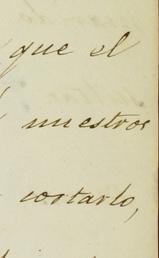 que el
nuestros
costarlo,